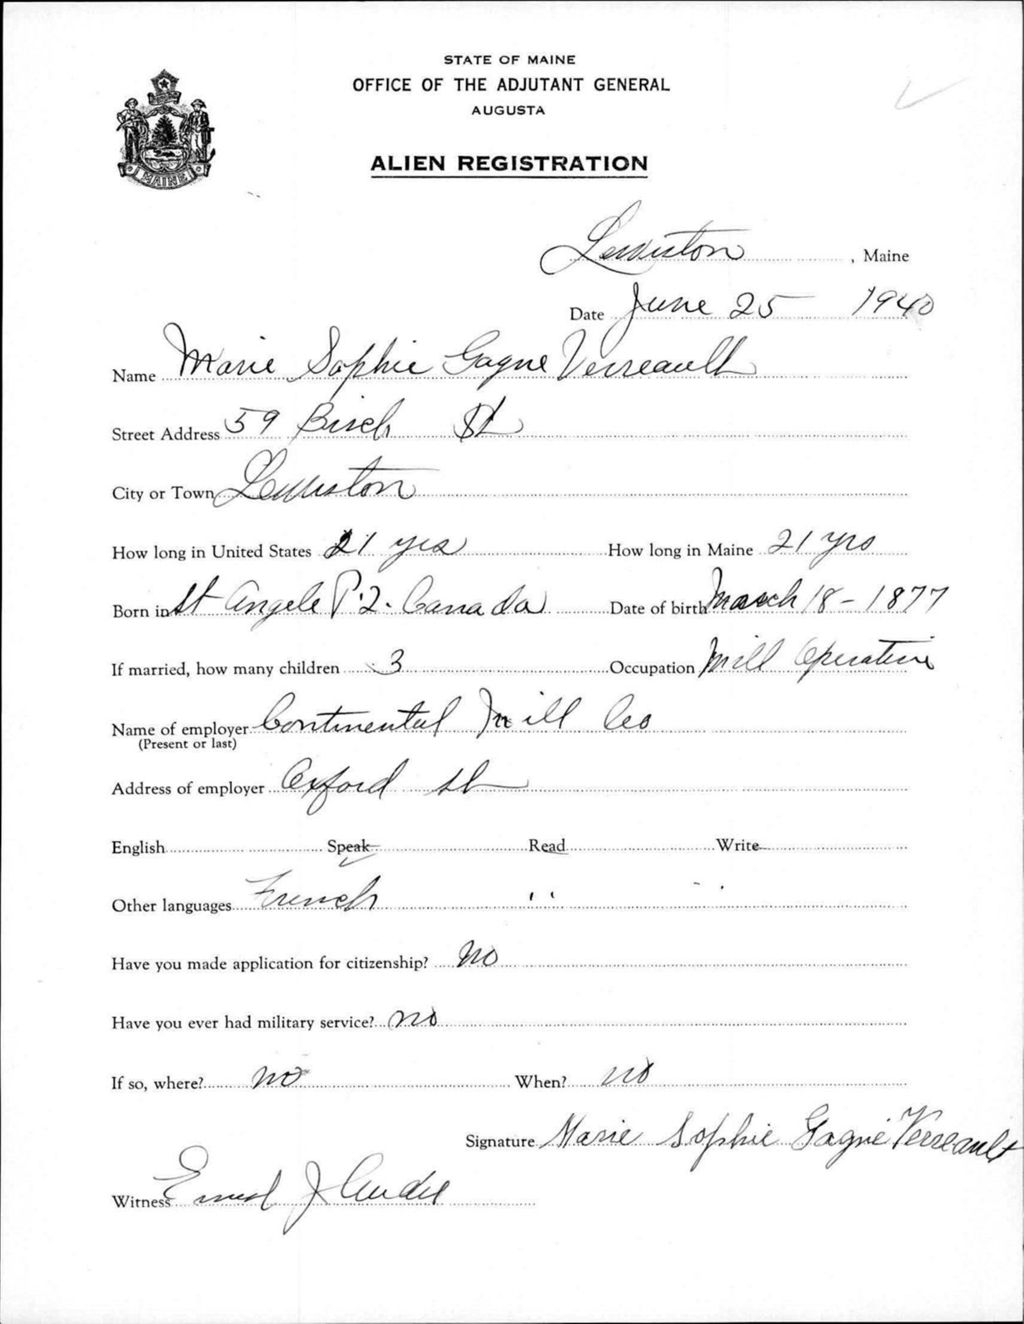 STATE OF MAINE
OFFICE OF THE ADJUTANT GENERAL
AUGUSTA
ALIEN REGISTRATION
MAINE
Lewiston, Maine
Date June 25 1940
Name Marie Sophie Gagne Verreault
Street Address 59 Birch St
City or Town Lewiston
How long in United States 21 yrs How long in Maine 21 yrs
Born in St Angele P.Q. Canada Date of birth March 18 - 1877
If married, how many children 3 Occupation Mill Operative
Name of employer Continental Mill Co
(Present or last)
Address of employer Oxford St
English Speak Read Write
Other languages French " "
Have you made application for citizenship? No
Have you ever had military service? no
If so, where? no When? no
Signature Marie Sophie Gagné Verreault
Witness Ernest J